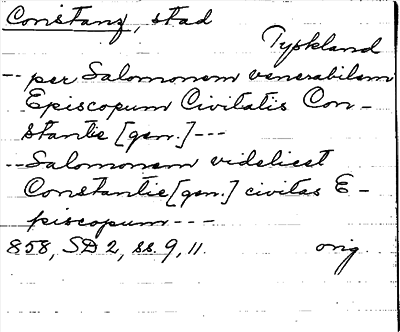 Constanz, stad
Tyskland
-- per Salomonem venerabilem
Episcopum Civitatis Con-
stantie [gen.] ---
-- Salomonem videlicet
Constantie [gen.] civitas E-
piscopum ---
858, SD 2, ss. 9, 11. orig.